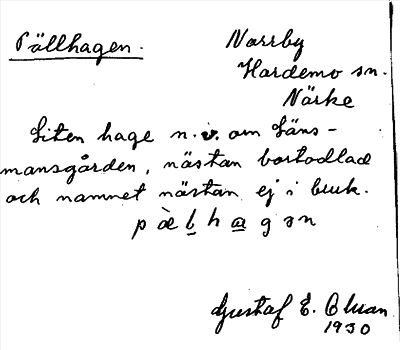 Pällhagen.
Norrby
Hardemo sn.
Närke
Liten hage n.v. om Läns-
mansgården, nästan bortodlad
och namnet nästan ej i bruk.
p æ̀ l̲ h a̲ g ə n
Gustaf E. Bluan
1930